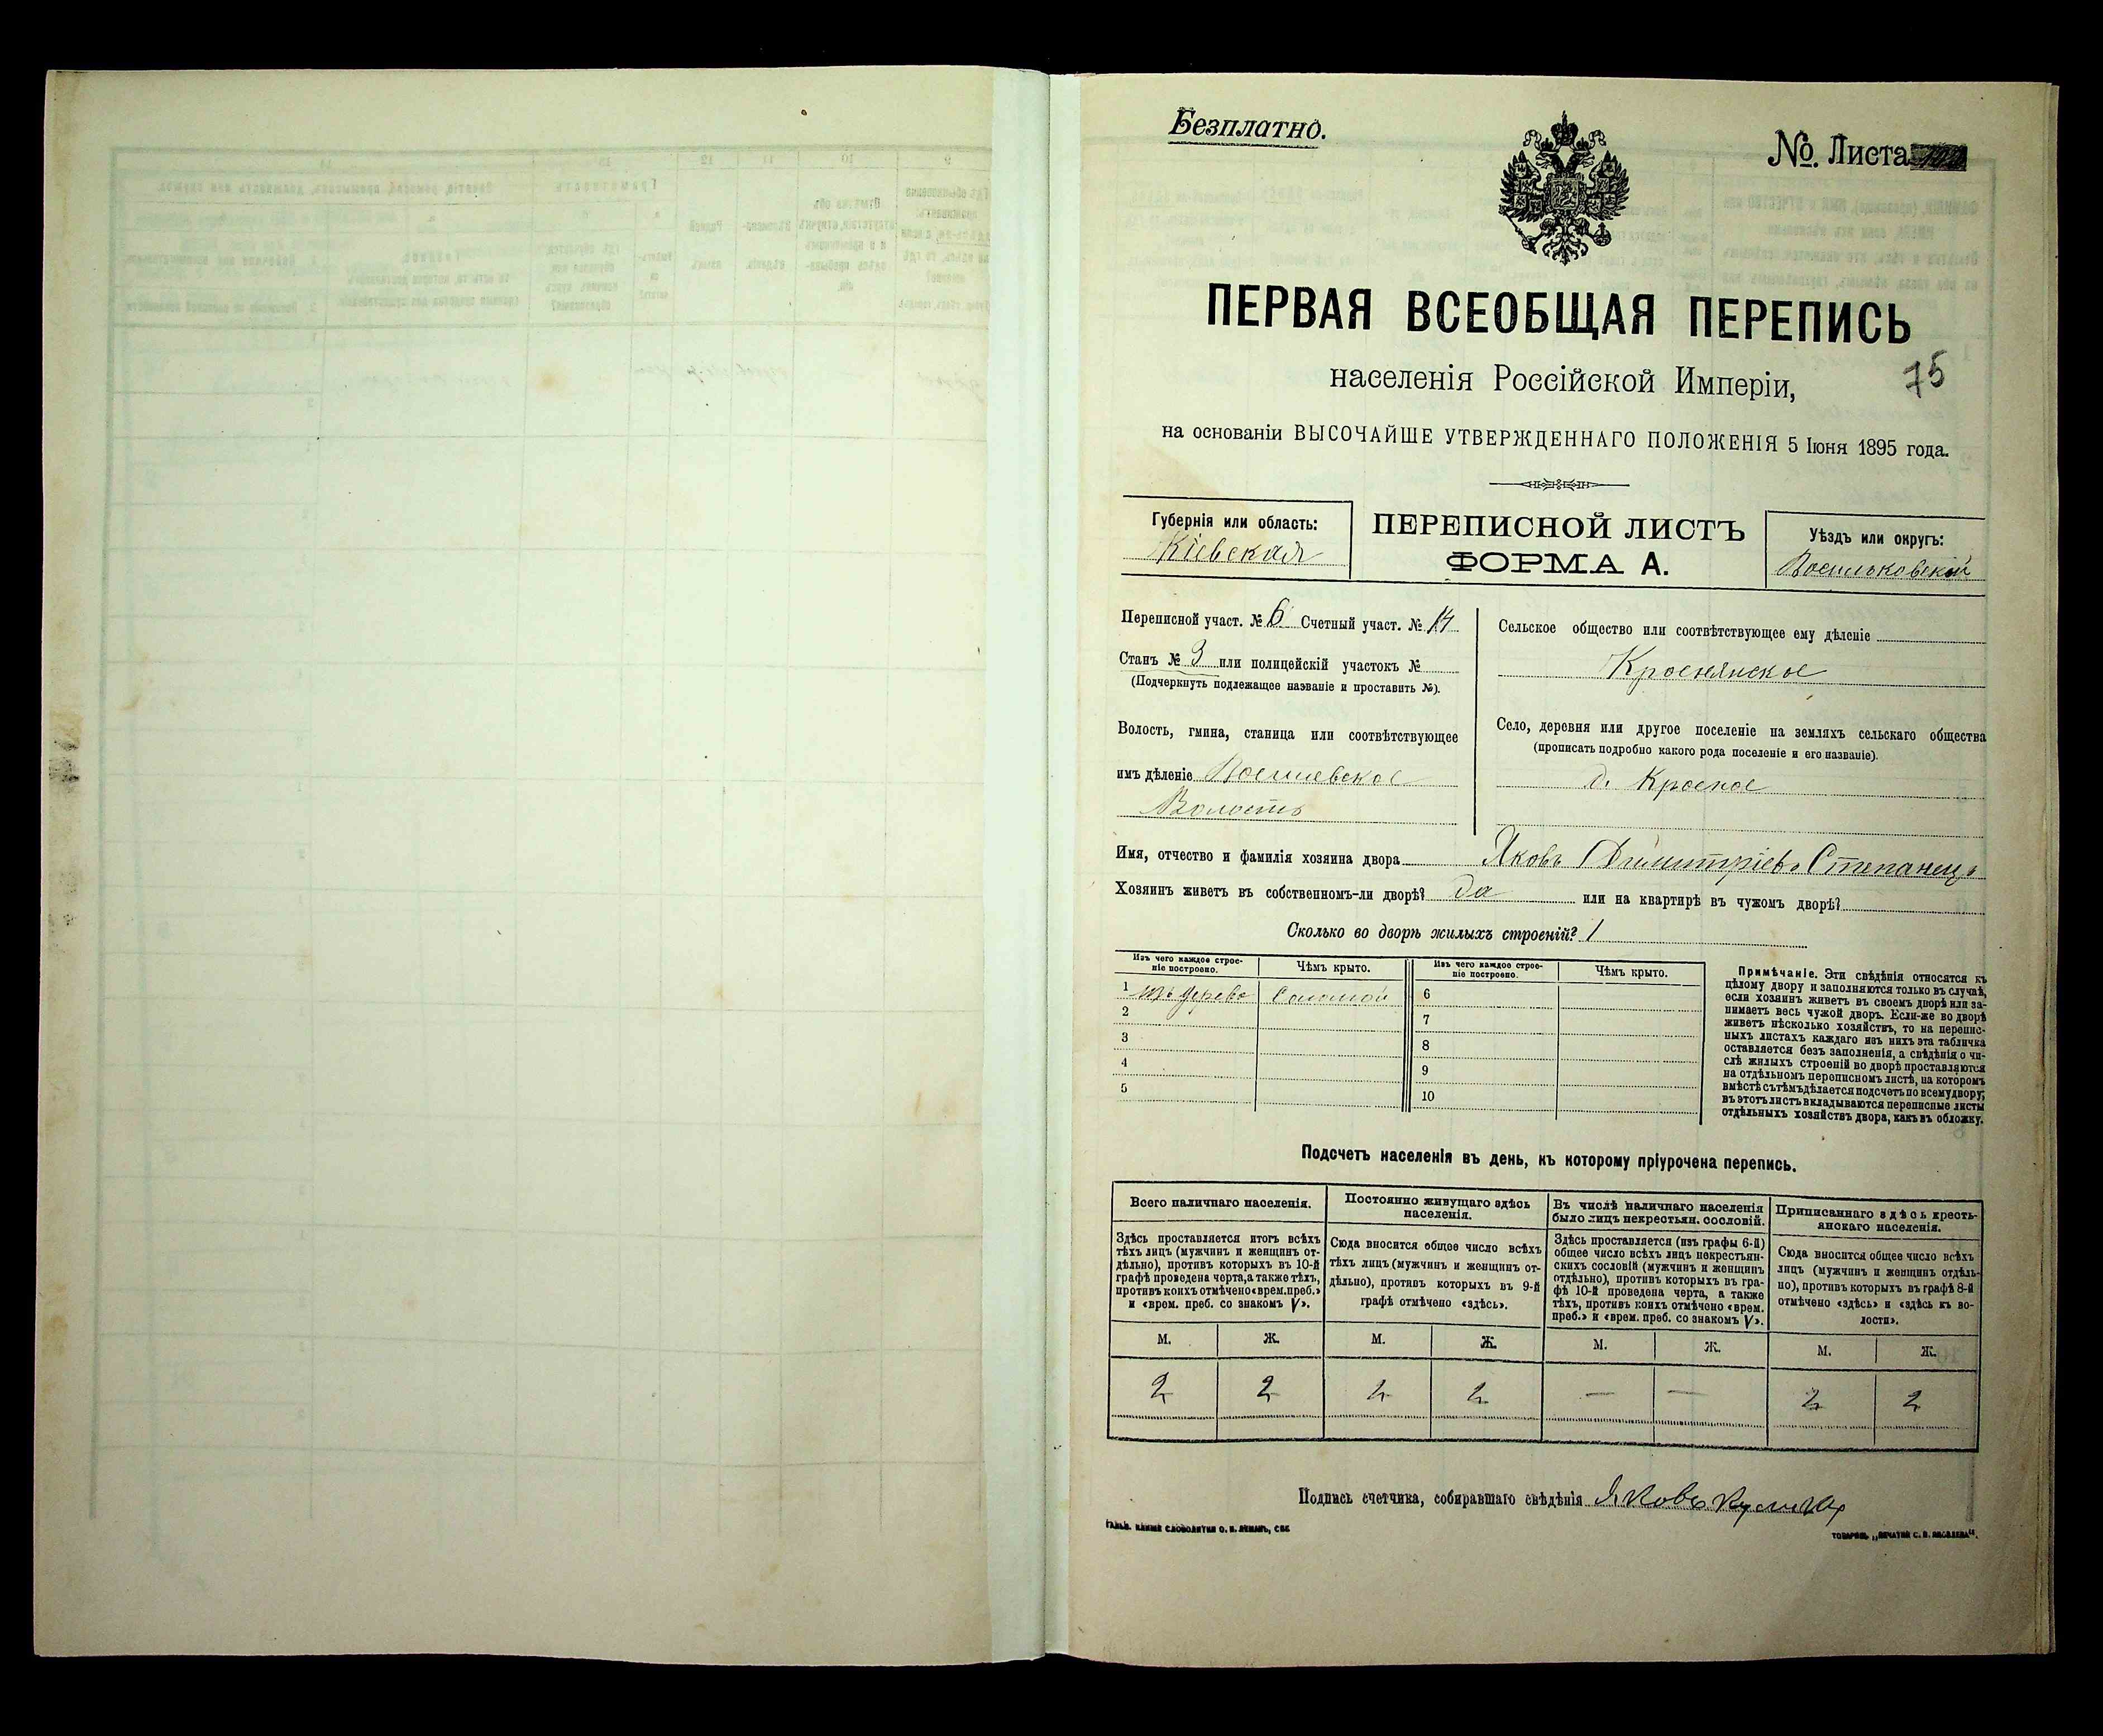 Безплатно.
№. Листа
ПЕРВАЯ ВСЕОБЩАЯ ПЕРЕПИСЬ
населенія Россійской Имперіи,
75
на основаніи ВЫСОЧАЙШЕ УТВЕРЖДЕННАГО ПОЛОЖЕНІЯ 5 Іюня 1895 года.
Губернія или область:
Кіевская
ПЕРЕПИСНОЙ ЛИСТЪ
ФОРМА А.
Уѣздъ или округъ:
Васильковскій
Переписной участ. № 6 Счетный участ. № 14
Станъ № 3 или полицейскій участокъ №
(Подчеркнуть подлежащее названіе и проставить №).
Волость, гмина, станица или соотвѣтствующее
имъ дѣленіе
Волость
Сельское общество или соотвѣтствующее ему дѣленіе
Краснянское
Село, деревня или другое поселеніе на земляхъ сельскаго общества
(прописать подробно какого рода поселеніе и его названіе).
д. Красное
Имя, отчество и фамилія хозяина двора Яковъ Димитріевъ Степанецъ
Хозяинъ живетъ въ собственномъ-ли дворѣ? да или на квартирѣ въ чужомъ дворѣ?
Сколько во дворѣ жилыхъ строеній? 1
Изъ чего каждое строе-
ніе построено.
Чѣмъ крыто.
Изъ чего каждое строе-
ніе построено.
Чѣмъ крыто.
1 изъ дерева Соломой 6
2 7
3 8
4 9
5 10
Примѣчаніе. Эти свѣдѣнія относятся къ
цѣлому двору и заполняются только въ случаѣ,
если хозяинъ живетъ въ своемъ дворѣ или за-
нимаетъ весь чужой дворъ. Если-же во дворѣ
живетъ нѣсколько хозяйствъ, то на перепис-
ныхъ листахъ каждаго изъ нихъ эта табличка
оставляется безъ заполненія, а свѣдѣнія о чи-
слѣ жилыхъ строеній во дворѣ проставляются
на отдѣльномъ переписномъ листѣ, на которомъ
вмѣстѣ съ тѣмъ дѣлается подсчетъ по всему двору;
въ этотъ листъ вкладываются переписные листы
отдѣльныхъ хозяйствъ двора, какъ въ обложку.
Подсчетъ населенія въ день, къ которому пріурочена перепись.
Всего наличнаго населенія.
Здѣсь проставляется итогъ всѣхъ
тѣхъ лицъ (мужчинъ и женщинъ от-
дѣльно), противъ которыхъ въ 10-й
графѣ проведена черта, а также тѣхъ,
противъ коихъ отмѣчено «врем. преб.»
и «врем. преб. со знакомъ V».
Постоянно живущаго здѣсь
населенія.
Сюда вносится общее число всѣхъ
тѣхъ лицъ (мужчинъ и женщинъ от-
дѣльно), противъ которыхъ въ 9-й
графѣ отмѣчено «здѣсь».
Въ числѣ наличнаго населенія
было лицъ некрестьян. сословій.
Здѣсь проставляется (изъ графы 6-й)
общее число всѣхъ лицъ некрестьян-
скихъ сословій (мужчинъ и женщинъ
отдѣльно), противъ которыхъ въ гра-
фѣ 10-й проведена черта, а также
тѣхъ, противъ коихъ отмѣчено «врем.
преб.» и «врем. преб. со знакомъ V».
Приписаннаго здѣсь кресть-
янскаго населенія.
Сюда вносится общее число всѣхъ
лицъ (мужчинъ и женщинъ отдѣль-
но), противъ которыхъ въ графѣ 8-й
отмѣчено «здѣсь» и «здѣсь къ во-
лости».
М. Ж. М. Ж. М. Ж. М. Ж.
2 2 2 2 — — 2 2
Подпись счетчика, собиравшаго свѣдѣнія Яковъ